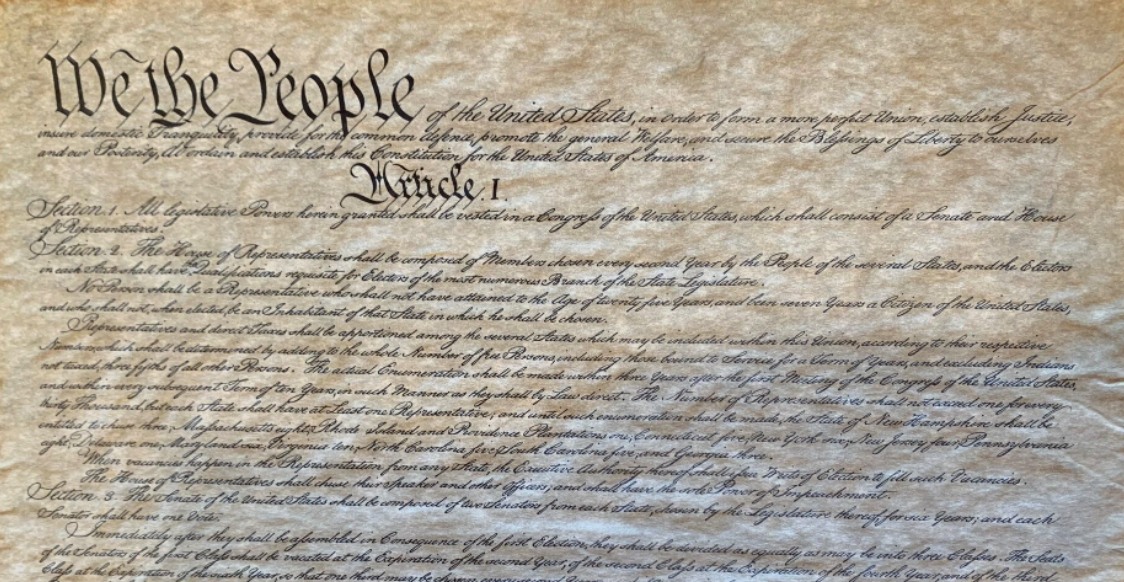 We the People of the United States, in order to form a more perfect Union, establish Justice,
insure domestic Tranquility, provide for the common defence, promote the general Welfare, and secure the Blessings of Liberty to ourselves
and our Posterity, do ordain and establish this Constitution for the United States of America.
Article. I.
Section. 1. All legislative Powers herein granted shall be vested in a Congress of the United States, which shall consist of a Senate and House
of Representatives.
Section. 2. The House of Representatives shall be composed of Members chosen every second Year by the People of the several States, and the Electors
in each State shall have Qualifications requisite for Electors of the most numerous Branch of the State Legislature.
No Person shall be a Representative who shall not have attained to the Age of twenty five Years, and been seven Years a Citizen of the United States,
and who shall not, when elected, be an Inhabitant of that State in which he shall be chosen.
Representatives and direct Taxes shall be apportioned among the several States which may be included within this Union, according to their respective
Numbers, which shall be determined by adding to the whole Number of free Persons, including those bound to Service for a Term of Years, and excluding Indians
not taxed, three fifths of all other Persons. The actual Enumeration shall be made within three Years after the first Meeting of the Congress of the United States,
and within every subsequent Term of ten Years, in such Manner as they shall by Law direct. The Number of Representatives shall not exceed one for every
thirty Thousand, but each State shall have at Least one Representative; and until such enumeration shall be made, the State of New Hampshire shall be
entitled to chuse three, Massachusetts eight, Rhode Island and Providence Plantations one, Connecticut five, New York six, New Jersey four, Pennsylvania
eight, Delaware one, Maryland six, Virginia ten, North Carolina five, South Carolina five, and Georgia three.
When vacancies happen in the Representation from any State, the Executive Authority thereof shall issue Writs of Election to fill such Vacancies.
The House of Representatives shall chuse their Speaker and other Officers; and shall have the sole Power of Impeachment.
Section. 3. The Senate of the United States shall be composed of two Senators from each State, chosen by the Legislature thereof, for six Years; and each
Senator shall have one Vote.
Immediately after they shall be assembled in Consequence of the first Election, they shall be divided as equally as may be into three Classes. The Seats
of the Senators of the first Class shall be vacated at the Expiration of the second Year, of the second Class at the Expiration of the fourth Year, and of the third
Class at the Expiration of the sixth Year, so that one third may be chosen every second Year